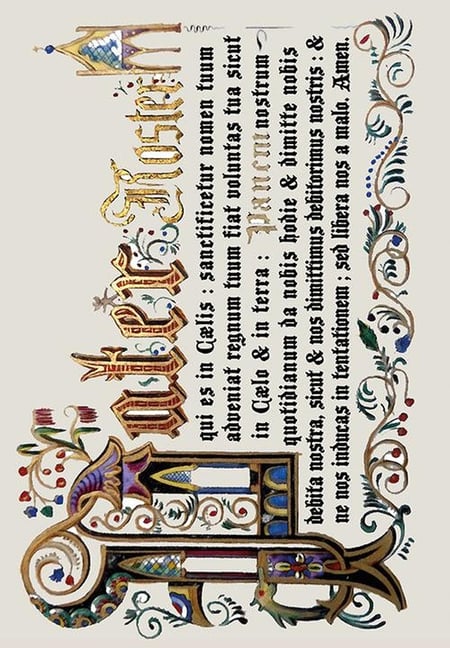 Pater Noster
qui es in Cælis : sanctificetur nomen tuum
adveniat regnum tuum fiat voluntas tua sicut
in Cælo & in terra : Panem nostrum
quotidianum da nobis hodie & dimitte nobis
debita nostra, sicut & nos dimittimus debitorimus nostris : &
ne nos inducas in tentationem ; sed libera nos a malo. Amen.